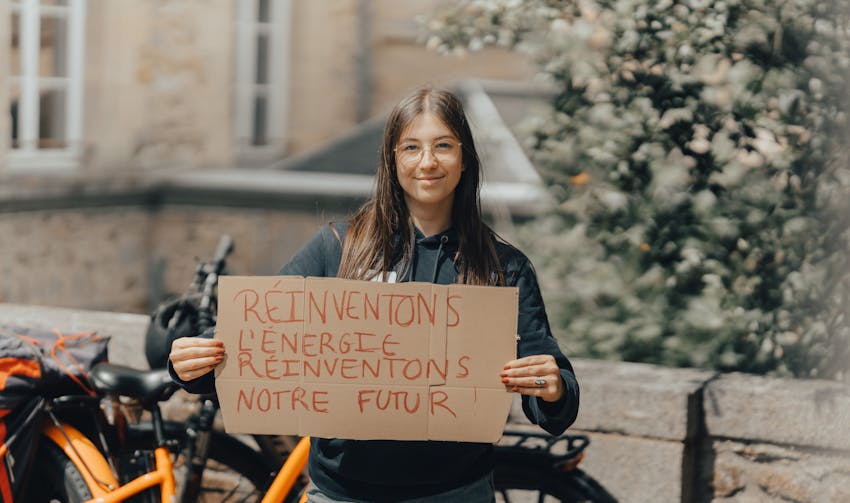 RÉINVENTONS
L'ÉNERGIE
RÉINVENTONS
NOTRE FUTUR